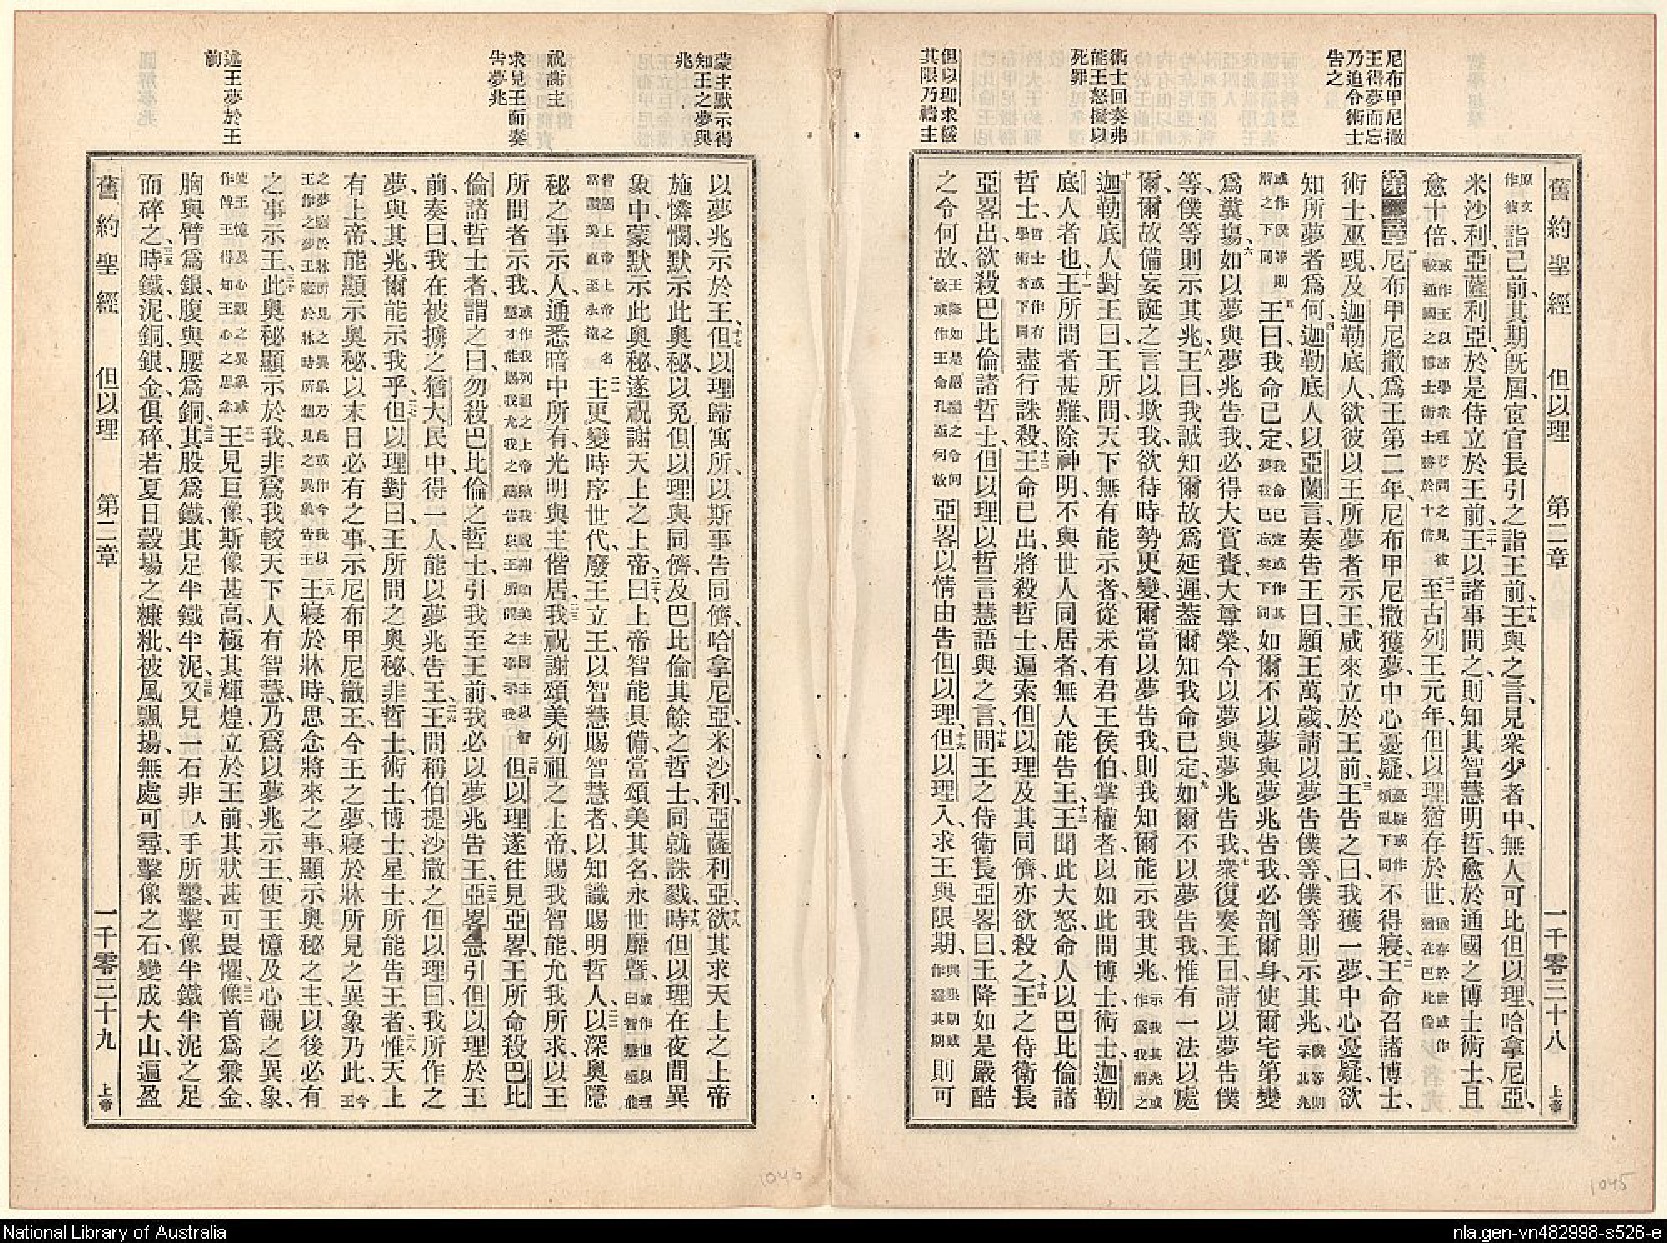 尼布甲尼撒
王得夢而忘
乃追令術士
告之
術士回奏弗
能王怒擬以
死罪
但以理求緩
其限乃禱主
舊約聖經 但以理 第二章 一千零三十八 上帝
詣己前其期旣屆宦官長引之詣王前十九王與之言見衆少者中無人可比但以理哈拿尼亞
米沙利亞薩利亞於是侍立於王前二十王以諸事問之則知其智慧明哲愈於通國之博士術士且
愈十倍二一至古列王元年但以理猶存於世
第二章尼布甲尼撒爲王第二年尼布甲尼撒獲夢中心憂疑不得寢二王命召諸博士
術士巫覡及迦勒底人欲彼以王所夢者示王咸來立於王前三王告之曰我獲一夢中心憂疑欲
知所夢者爲何四迦勒底人以亞蘭言奏告王曰願王萬歲請以夢告僕等僕等則示其兆
五王曰我命已定如爾不以夢與夢兆告我必剖爾身使爾宅第變
爲糞塲六如以夢與夢兆告我必得大賞賚大尊榮今以夢與夢兆告我七衆復奏王曰請以夢告僕
等僕等則示其兆八王曰我誠知爾故爲延遲葢爾知我命已定九如爾不以夢告我惟有一法以處
爾爾故備妄誕之言以欺我欲待時勢更變爾當以夢告我則我知爾能示我其兆
十迦勒底人對王曰王所問天下無有能示者從未有君王侯伯掌權者以如此問博士術士迦勒
底人者也十一王所問者甚難除神明不與世人同居者無人能告王十二王聞此大怒命人以巴比倫諸
哲士盡行誅殺十三王命已出將殺哲士遍索但以理及其同儕亦欲殺之十四王之侍衞長
亞畧出欲殺巴比倫諸哲士但以理以哲言慧語與之言十五問王之侍衞長亞畧曰王降如是嚴酷
之令何故亞畧以情由告但以理十六但以理入求王與限期則可
蒙主默示得
知王之夢與
兆
祝謝主
求見王面奏
告夢兆
述王夢於王
前
以夢兆示於王十七但以理歸寓所以斯事告同儕哈拿尼亞米沙利亞薩利亞十八欲其求天上之上帝
施憐憫默示此奧秘以免但以理與同儕及巴比倫其餘之哲士同就誅戮十九時但以理在夜間異
象中蒙默示此奧秘遂祝謝天上之上帝二十曰上帝智能具備當頌美其名永世靡曁
二一主更變時序世代廢王立王以智慧賜智慧者以知識賜明哲人二二以深奧隱
秘之事示人通悉暗中所有光明與主偕居二三我祝謝頌美列祖之上帝賜我智能允我所求以王
所問者示我二四但以理遂往見亞畧王所命殺巴比
倫諸哲士者謂之曰勿殺巴比倫之哲士引我至王前我必以夢兆告王二五亞畧急引但以理於王
前奏曰我在被擄之猶大民中得一人能以夢兆告王二六王問稱伯提沙撒之但以理曰我所作之
夢與其兆爾能示我乎二七但以理對曰王所問之奧秘非哲士術士博士星士所能告王者二八惟天上
有上帝能顯示奧秘以末日必有之事示尼布甲尼撒王今王之夢寢於牀所見之異象乃此
二九王寢於牀時思念將來之事顯示奧秘之主以後必有
之事示王三十此奧秘顯示於我非爲我較天下人有智慧乃爲以夢兆示王使王憶及心觀之異象
三一王見巨像斯像甚高極其輝煌立於王前其狀甚可畏懼三二像首爲精金
胸與臂爲銀腹與腰爲銅三三其股爲鐵其足半鐵半泥三四又見一石非人手所鑿擊像半鐵半泥之足
而碎之三五時鐵泥銅銀金俱碎若夏日穀場之糠粃被風飄揚無處可尋擊像之石變成大山遍盈
舊約聖經 但以理 第二章 一千零三十九 上帝
1046
1045
National Library of Australia
nla.gen-vn482998-s526-e